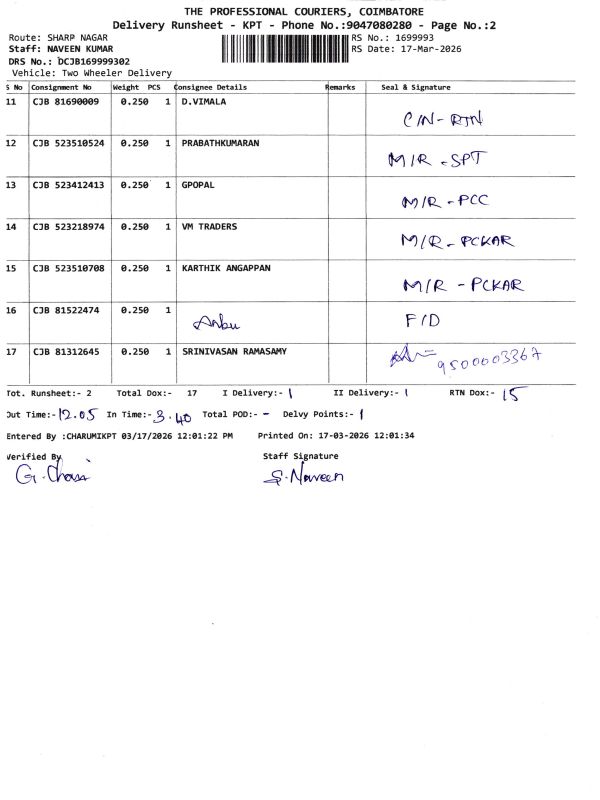 THE PROFESSIONAL COURIERS, COIMBATORE
Delivery Runsheet - KPT - Phone No.:9047080280 - Page No.:2
Route: SHARP NAGAR RS No.: 1699993
Staff: NAVEEN KUMAR RS Date: 17-Mar-2026
DRS No.: DCJB169999302
Vehicle: Two Wheeler Delivery
S No Consignment No Weight PCS Consignee Details Remarks Seal & Signature
11 CJB 81690009 0.250 1 D.VIMALA C/N- RTN
12 CJB 523510524 0.250 1 PRABATHKUMARAN M/R - SPT
13 CJB 523412413 0.250 1 GPOPAL M/R - PCC
14 CJB 523218974 0.250 1 VM TRADERS M/R - PCKAR
15 CJB 523510708 0.250 1 KARTHIK ANGAPPAN M/R - PCKAR
16 CJB 81522474 0.250 1 Anbu F/D
17 CJB 81312645 0.250 1 SRINIVASAN RAMASAMY 9500003367
Tot. Runsheet:- 2 Total Dox:- 17 I Delivery:- 1 II Delivery:- 1 RTN Dox:- 15
Out Time:- 12.05 In Time:- 3.40 Total POD:- - Delvy Points:- 1
Entered By :CHARUMIKPT 03/17/2026 12:01:22 PM Printed On: 17-03-2026 12:01:34
Verified By Staff Signature
G. S. Naveen